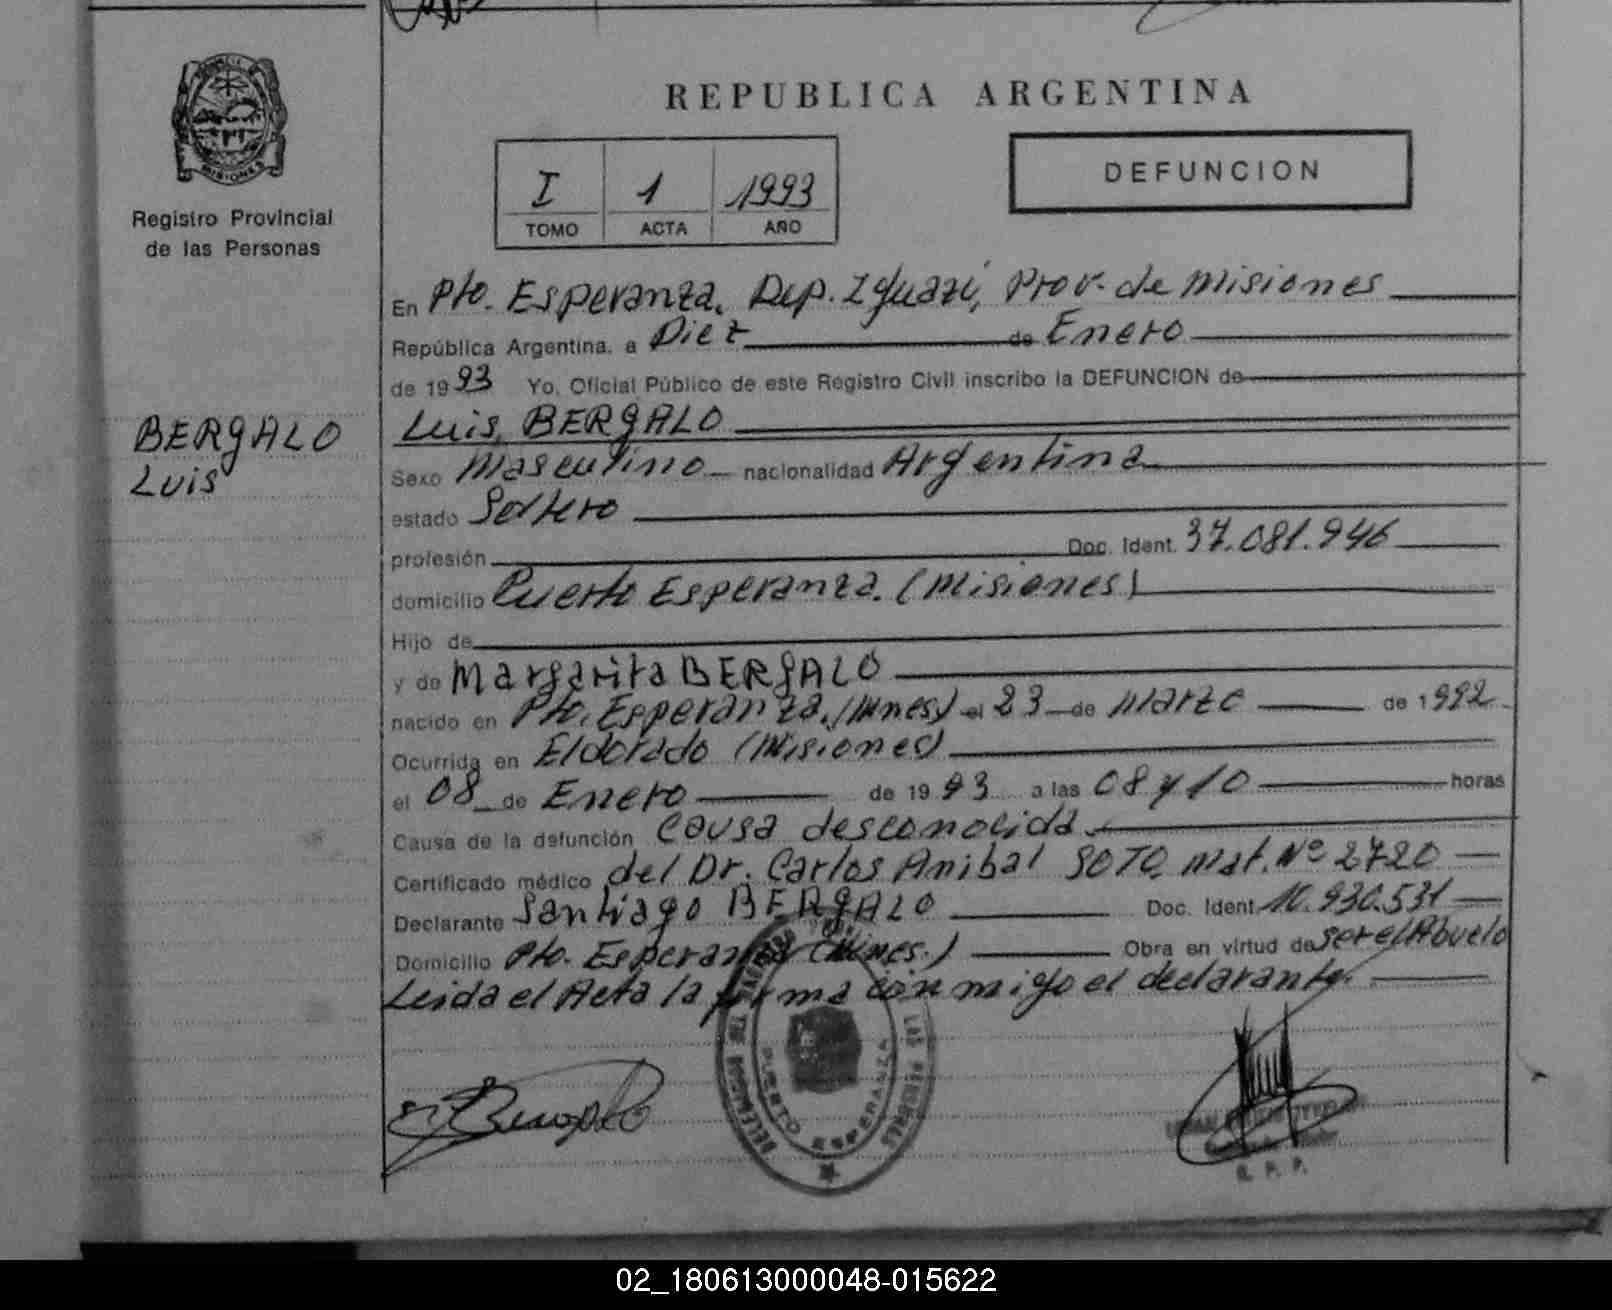 REPUBLICA ARGENTINA
MISIONES
Registro Provincial
de las Personas
I 1 1993
TOMO ACTA AÑO
DEFUNCION
En Pto. Esperanza, Dep. Iguazú, Prov. de Misiones
República Argentina, a Diez de Enero
de 1993 Yo, Oficial Público de este Registro Civil inscribo la DEFUNCION de
BERGALO
Luis
Luis, BERGALO
Sexo Masculino nacionalidad Argentina
estado Soltero
profesión Doc. Ident. 37.081.946
domicilio Puerto Esperanza. (Misiones)
Hijo de
y de Margarita BERGALO
nacido en Pto. Esperanza. (Mnes) el 23 de Marzo de 1992
Ocurrida en Eldorado (Misiones)
el 08 de Enero de 1993 a las 08 y 10 horas
Causa de la defunción Causa desconocida
Certificado médico del Dr. Carlos Anibal SOTO, Mat. Nº 2720
Declarante Santiago BERGALO Doc. Ident. 10.930.531
Domicilio Pto. Esperanza (Mnes.) Obra en virtud de ser el Abuelo
Leida el Acta la firma conmigo el declarante.
PUERTO ESPERANZA
R. P. P.
02_180613000048-015622